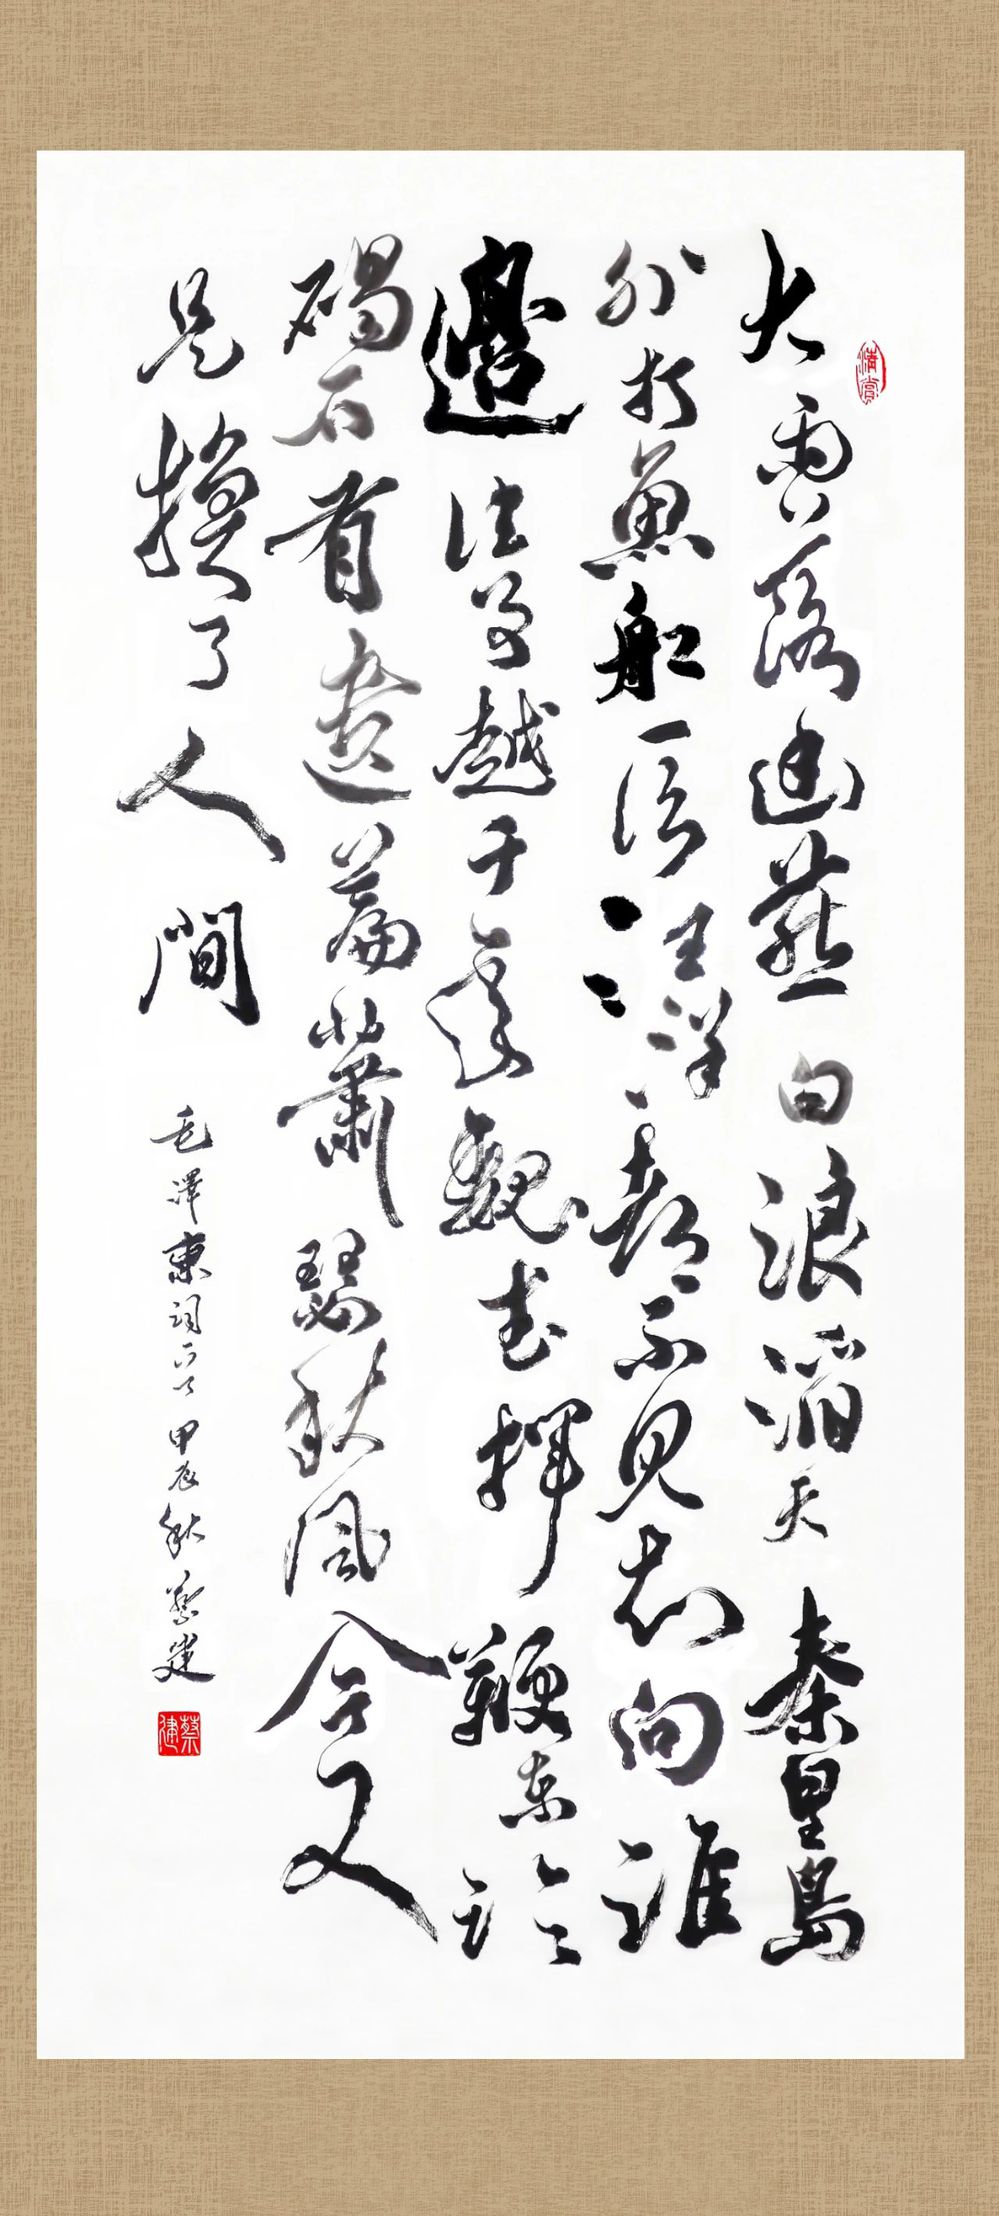 清賞
大雨落幽燕白浪滔天秦皇島
外打魚船一片汪洋都不見知向誰
邊往事越千年魏武揮鞭東臨
碣石有遺篇蕭瑟秋風今又
是換了人間
毛澤東詞一首甲辰秋蔡建
蔡建